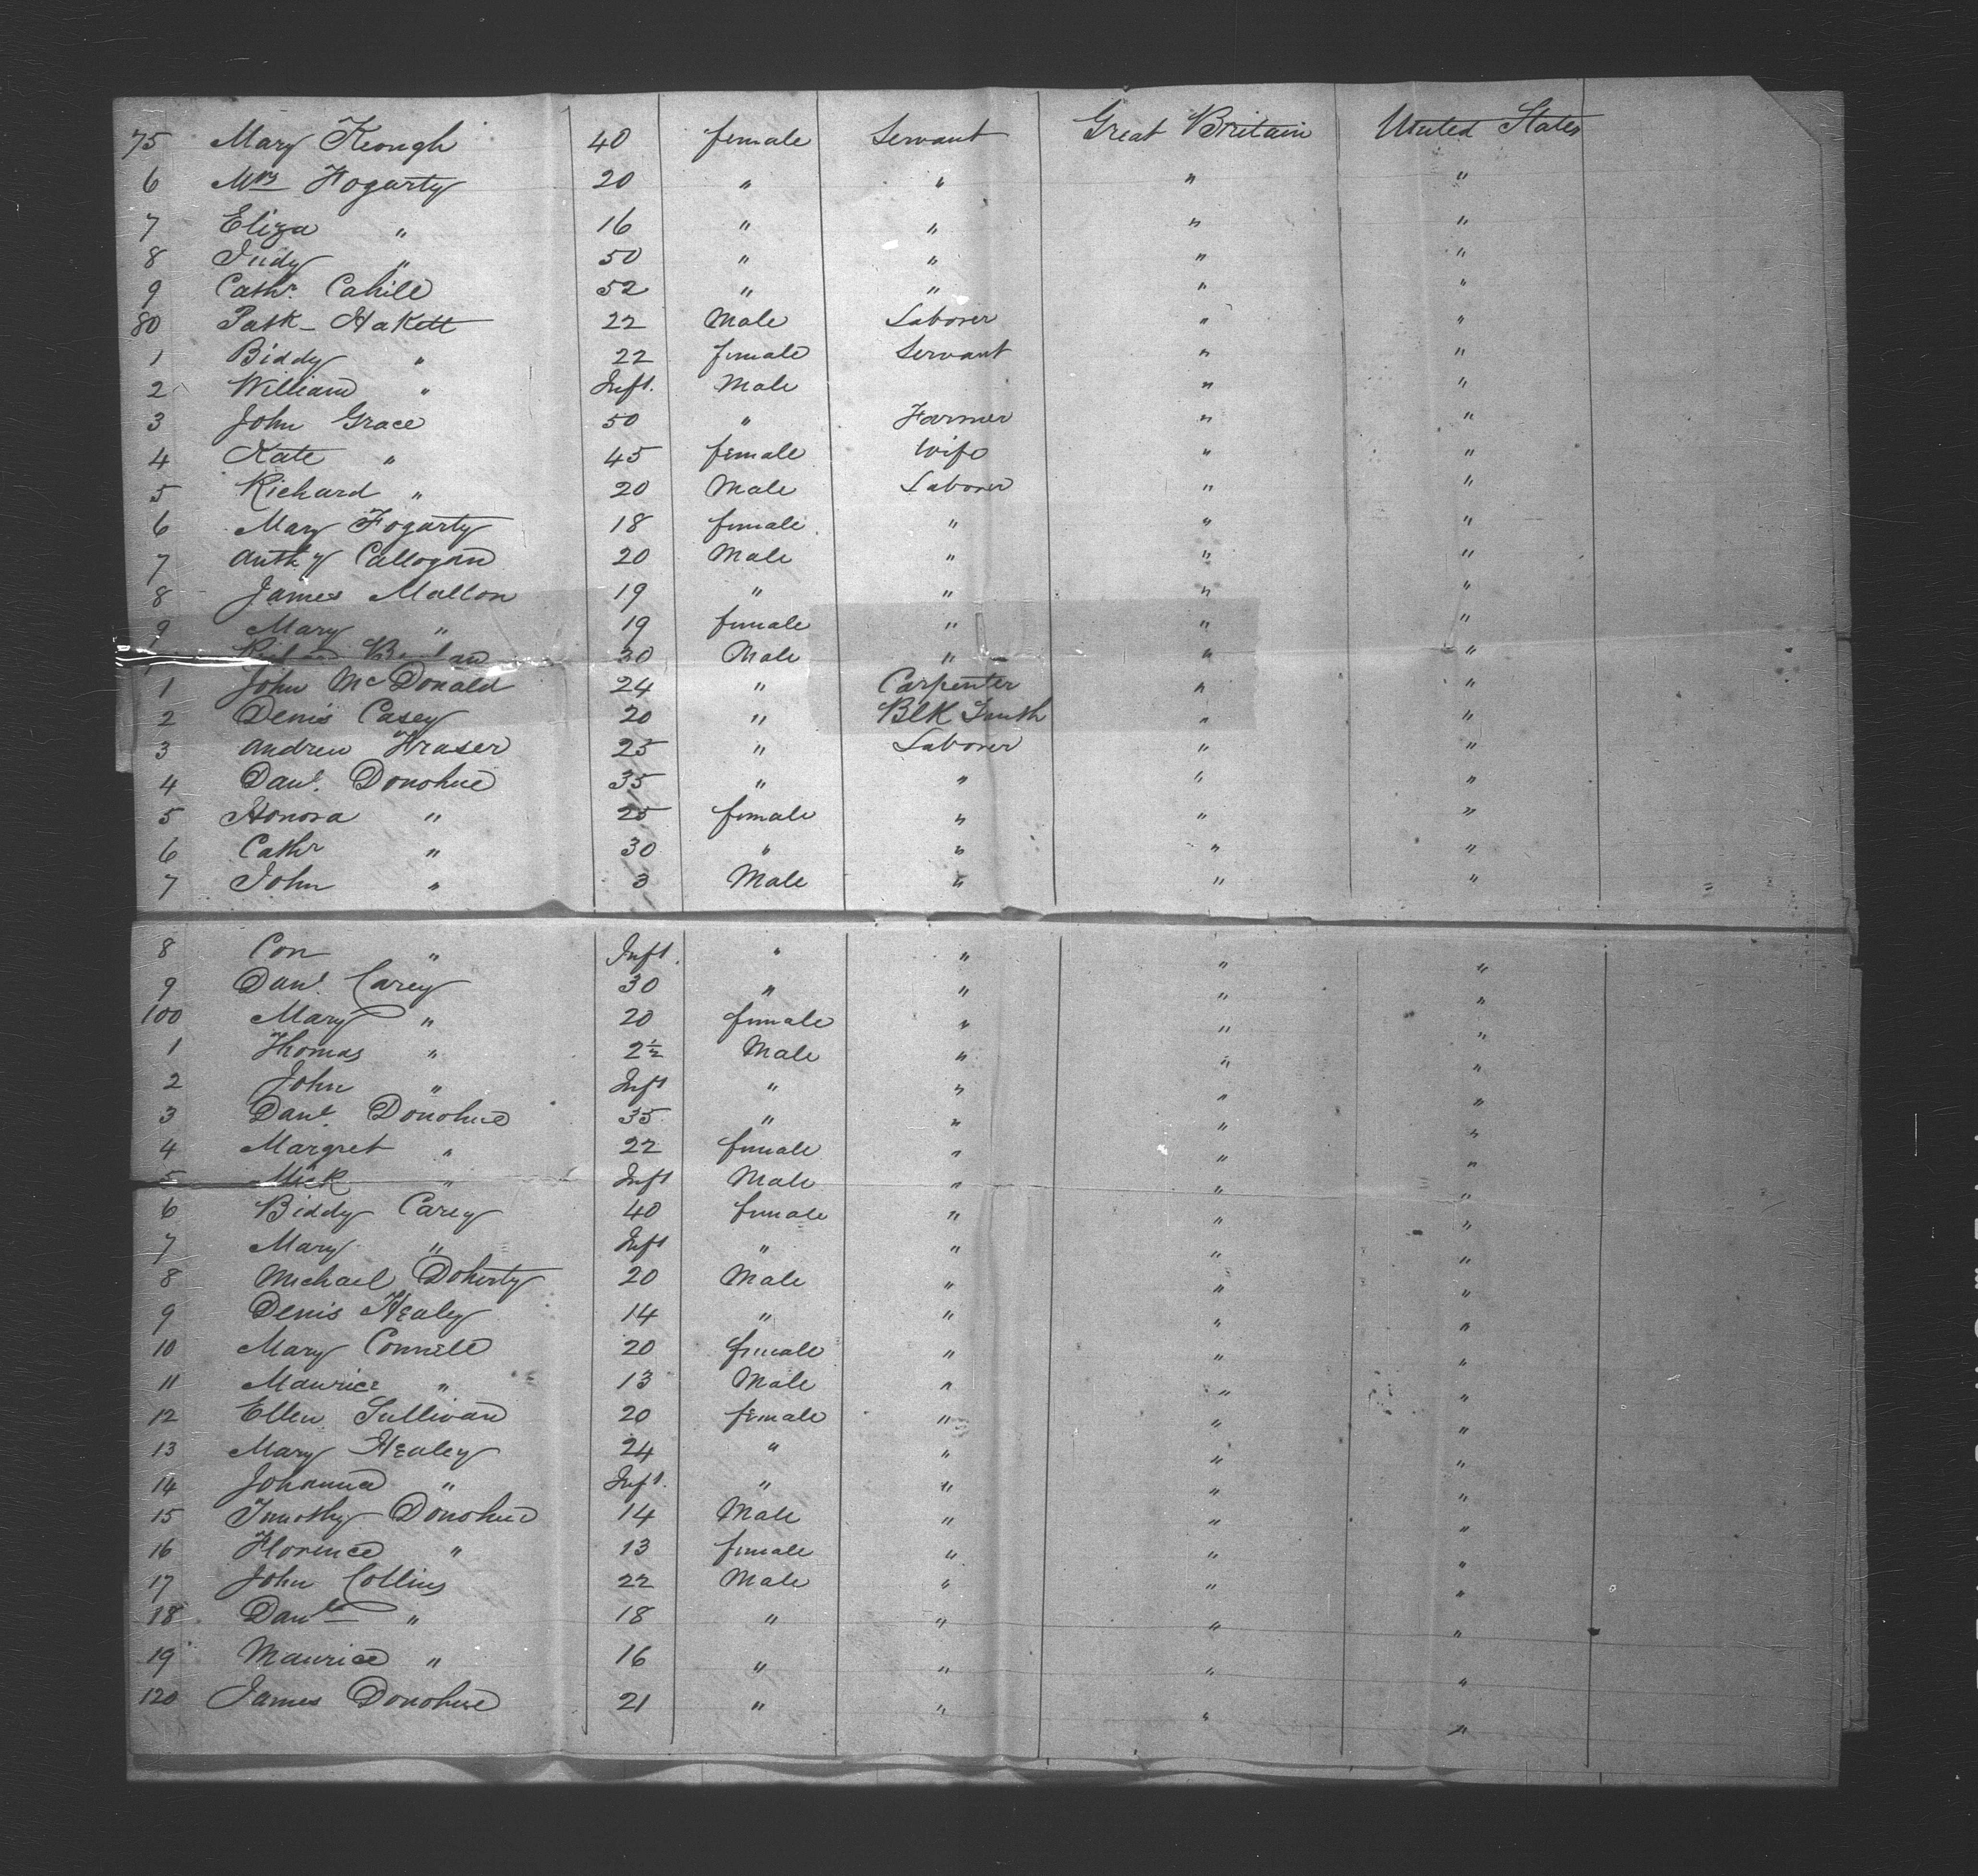 75 Mary Keough 40 female Servant Great Britain United States
6 Mrs Fogarty 20 " " " "
7 Eliza " 16 " " " "
8 Judy " 50 " " " "
9 Cathr. Cahill 52 " " " "
80 Patk- Hakett 22 Male Laborer " "
1 Biddy " 22 female Servant " "
2 William " Inft. Male " "
3 John Grace 50 " Farmer " "
4 Kate " 45 female Wife " "
5 Richard " 20 Male Laborer " "
6 Mary Fogarty 18 female " " "
7 Anthy Callogan 20 Male " " "
8 James Mallon 19 " " " "
9 Mary " 19 female " " "
Male " " "
1 John McDonald 24 " Carpenter " "
2 Denis Casey 20 " Blk Smith " "
3 Andrew Fraser 25 " Laborer " "
4 Danl. Donohue 35 " " " "
5 Honora " 25 female " " "
6 Cathr " 30 " " " "
7 John " 3 Male " " "
8 Con " Inft. " " " "
9 Danl. Carey 30 " " " "
100 Mary " 20 female " " "
1 Thomas " 2½ Male " " "
2 John " Inft " " " "
3 Danl. Donohue 35 " " " "
4 Margret " 22 female " " "
5 Mick " Inft Male " " "
6 Biddy Carey 40 female " " "
7 Mary " Inft " " " "
8 Michael Doherty 20 Male " " "
9 Denis Healey 14 " " " "
10 Mary Connell 20 female " " "
11 Maurice " 13 Male " " "
12 Ellen Sullivan 20 female " " "
13 Mary Healey 24 " " " "
14 Johanna " Inft. " " " "
15 Timothy Donohue 14 Male " " "
16 Florence " 13 female " " "
17 John Collins 22 Male " " "
18 Danl " 18 " " " "
19 Maurice " 16 " " " "
120 James Donohue 21 " " " "